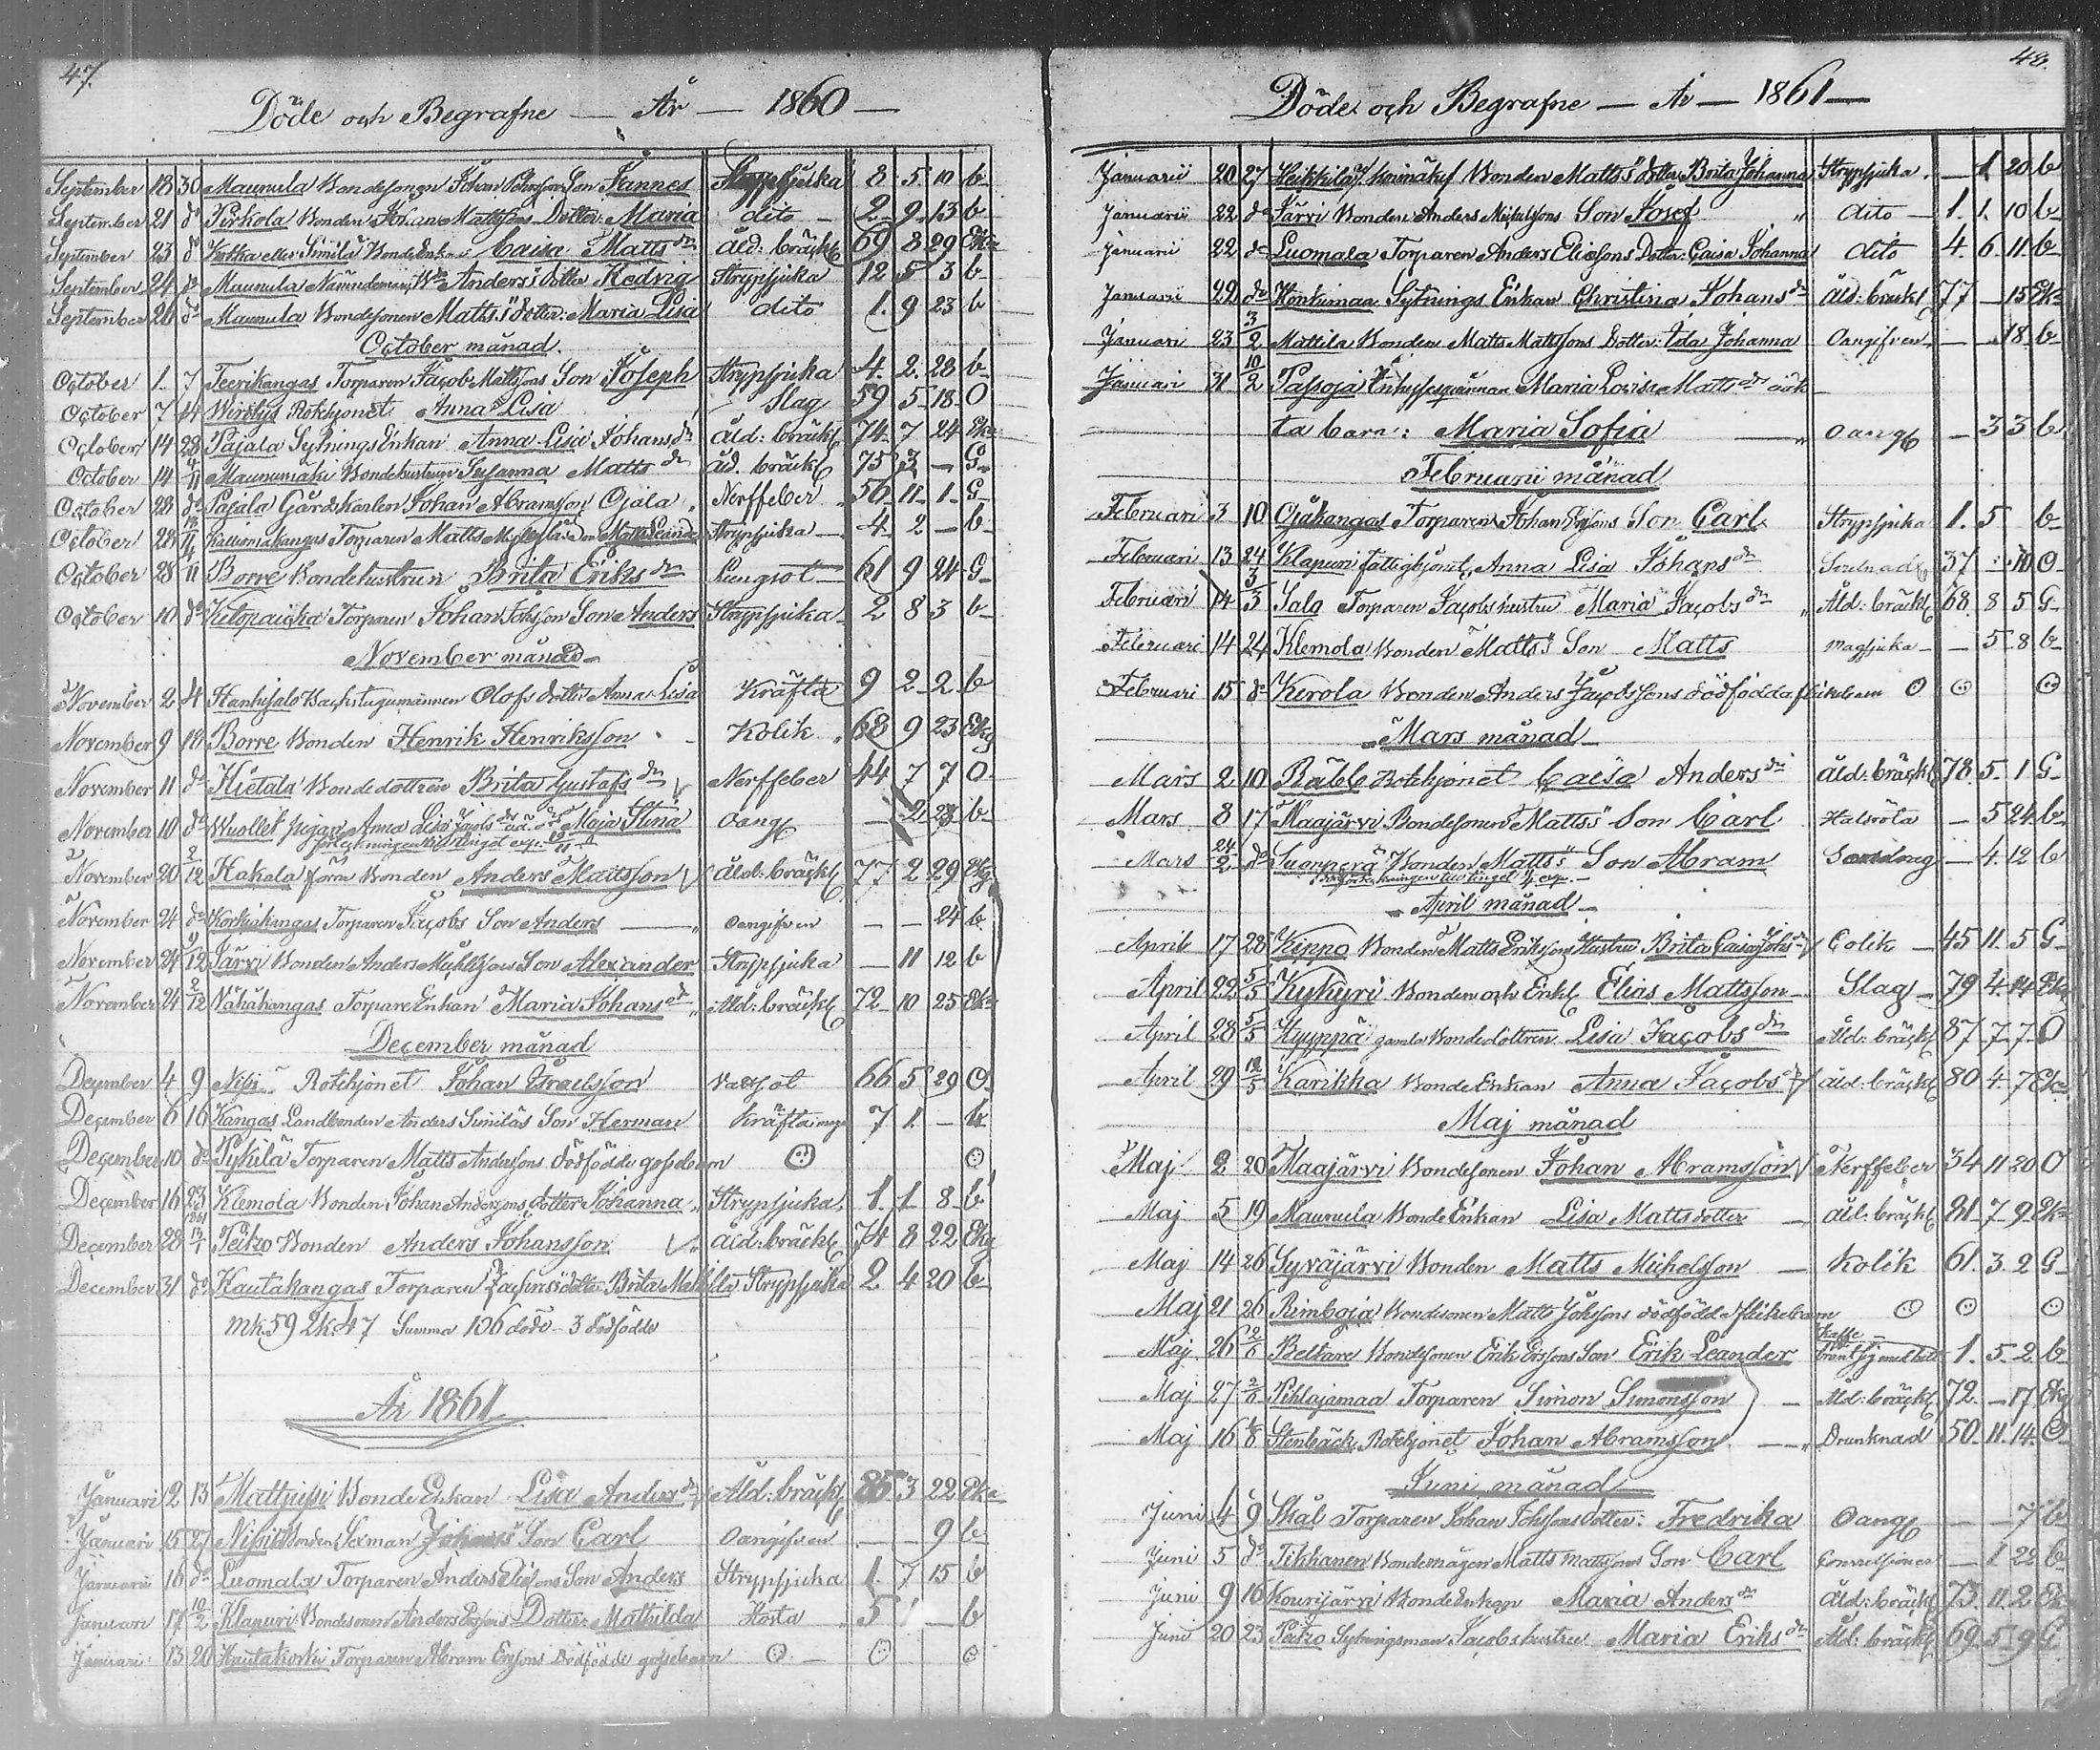 47.
Döde och Begrafne — År — 1860 —
September 18 30 Maunula Bondesonen Johan Son Jannes Strypsjuka 8 5 10 b
September 21 do Pirkola Bonden Johan Mattssons Dotter: Maria dito 2 9 13 b
September 23 do Kotka eller Simila Bonde Enkan Caisa Matts dr Åld: bräckl 69 8 29 Eka
September 24 do Maunula Nämndeman Anders's dotter Hedvig Strypsjuka 12 5 3 b
September 26 do Maunula Bondesonen Matts's dotter: Maria Lisa dito 1. 9 23 b
October månad.
October 1. 7 Teerikangas Torparen Jacob Mattssons Son Joseph Strypsjuka 4. 2. 28 b
October 7 14 Rotehjonet Anna Lisa Slag 59 5 18 O
October 14 28 Pajala Sytnings Enkan Anna Lisa Johans dr Åld: bräckl 74 7 24 Eka
October 14 4/11 Maunumäki Bondehustrun Susanna Matts dr åld. bräckl 75 3 — G
October 28 do Pajala Gårdskarlen Johan Abramsson Ojala Nerffeber 56 11 1 G
October 28 Torparen Matts Son Matts Leander Strypsjuka 4 2 — b
October 28 11 Borre Bondehustrun Brita Eriks dr Lungsot 61 9 24 G
October 10 do Ketopaikka Torparen Johan Johsson Son Anders Strypsjuka 2 8 3 b
November månad
November 2 4 Hanhisalo Backstugumannen Olofs dotter Anna Lisa Kräfta 9 2 2 b
November 9 18 Borre Bonden Henrik Henriksson Kolik 68 9 23 Ekg
November 11 do Hietala Bondedottren Brita Gustafs dr Nerffeber 44 7 7 O
November 10 do Wuollet pigan Anna Lisa Jacobs dr Maja Stina Oang — 2 23 b
November 20 2/12 Hakala förra Bonden Anders Mattsson Åld: bräckl 77 2 29 Ekg
November 24 do Korkiakangas Torparen Jacobs Son Anders oangifven — — 24 b
November 24 9/12 Järvi Bonden Anders Michelssons Son Alexander Strypsjuka — 11 12 b
November 24 2/12 Vähäkangas Torpare Enkan Maria Johans dr Åld: bräckl 72 10 25 Eka
December månad
December 4 9 Nisi Rotehjonet Johan Israelsson Vattsot 66 5 29 O
December 6 16 Kangas Landbonden Anders Similäs Son Herman Kräfta 7 1. — b
December 10 do Pykilä Torparen Matts Anderssons dödfödde gossebarn
December 16 23 Klemola Bonden Johan Anderssons dotter Johanna Strypsjuka 1 1 8 b
December 28 1861 13/1 Peitzo Bonden Anders Johansson Åld: bräckl 74 8 22 Ekg
December 31 do Kautakangas Torparen dotter Brita Mathilda Strypsjuka 2 4 20 b
mk. 59 2k. 47 Summa 106 döde — 3 dödfödde
År 1861
Januari 2 13 Mattzusi Bonde Enkan Lisa Anders dr Åld: bräckl 85 3 22 Eka
Januari 15 27 Nisi Bonden Sexman Johans's Son Carl Oangifven — — 9 b
Januari 16 do Luomala Torparen Anders Eliessons Son Anders Strypsjuka 1. 7 15 b
Januari 17 10/2 Klapuri Bondesonen Anders Dotter: Mathilda Hosta 5 1 — b
Januari 13 20 Hautakorki Torparen Abram Erssons Dödfödde gossebarn
48.
Döde och Begrafne — År — 1861 —
Januarii 20 27 Heikkilä Bonden Matts's dotter Brita Johanna Strypsjuka — 1 20 b
Januarii 22 do Järvi Bonden Anders Michelssons Son Josef dito 1. 1. 10 b
Januarii 22 do Luomala Torparen Anders Eliessons Dotter: Caisa Johanna dito 4. 6. 11. b
Januarii 22 do Honkimaa Sytnings Enkan Christina Johans dr Åld: bräckl 77 — 15 Eka
Januari 23 3/2 Mattila Bonden Matts Mattssons Dotter: Ida Johanna Oangifven — — 18 b
Januari 31 10/2 Passoja Inhysesqvinnan Maria Lovisa Matts dr oäk
ta barn: Maria Sofia oang — 3 3 b
Februarii månad
Februari 3 10 Ojakangas Torparen Johan Son Carl Strypsjuka 1. 5 b
Februari 13 24 Klapuri fattighjonet Anna Lisa Johans dr 37 10 O
Februari 14 3/3 Salo Torparen Jacobs hustru Maria Jacobs dr Åld: bräckl 68. 8 5 G
Februari 14 24 Klemola Bonden Matts's Son Matts magsjuka — 5 8 b
Februari 15 do Kerola Bonden Anders Jacobssons dödfödda flickebarn
Mars månad
Mars 2 10 Räbb Rotehjonet Caisa Anders dr Åld: bräckl 78. 5 1 G
Mars 8 17 Maajärvi Bondesonen Matts's Son Carl Halsröta — 5 24 b
Mars 24/2 do Suanperä Bonden Matts's Son Abram — 4. 12 b
April månad
April 17 28 Kippo Bonden Matts Erikssons Hustru Brita Caisa Johs dr Colik 45 11. 5 G
April 22 5/5 Kykyri Bonden och Enkl Elias Mattsson Slag 79 4. 14 Ekg
April 28 5/5 Kyyppä gamla Bondedottren Lisa Jacobs dr Åld: bräckl 87 7 7 O
April 29 12/5 Karikka Bonde Enkan Anna Jacobs dr Åld: bräckl 80 4 7 Eka
Maj månad
Maj 2 20 Maajärvi Bondesonen Johan Abramsson Nerffeber 34 11 20 O
Maj 5 19 Maunula Bonde Enkan Lisa Mattsdotter Åld: bräckl 81 7 9 Eka
Maj 14 26 Syväjärvi Bonden Matts Michelsson Kolik 61. 3. 2 G
Maj 21 26 Rimboja Bondesonen Matts Johssons dödfödda flickebarn
Maj 26 2/6 Beltare Bondesonen Erik Erssons Son Erik Leander 1. 5. 2. b
Maj 27 2/6 Pihlajamaa Torparen Simon Simonsson Åld: bräckl 72. — 17 Ekg
Maj 16 Stenbäck Rotehjonet Johan Abramsson Drunknad 50. 11. 14. O
Juni månad
Juni 4 9 Skål Torparen Johan Johssons dotter: Fredrika Oang — — 7 b
Juni 5 do Tikkanen Bondemågen Matts Mattssons Son Carl Convulsioner — 1 22 b
Juni 9 16 Kourijärvi Bonde Enkan Maria Anders dr Åld: bräckl 73. 11. 2 Eka
Juni 20 23 Peitzo Sytningsman Jacobs hustru Maria Eriks dr Åld: bräckl 69. 5 9 G